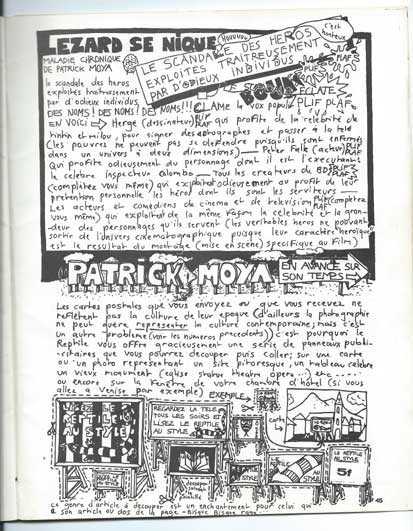 LEZARD SE NIQUE
MALADIE CHRONIQUE
DE PATRICK MOYA
HOUUUUU
c'est honteux
LE SCANDALE DES HEROS
EXPLOITES TRAITREUSEMENT
PAR D'ODIEUX INDIVIDUS
le scandale des heros
exploités traitreusement
par d'odieux individus,
DES NOMS! DES NOMS! DES NOMS!!!
CLAME la vox populi
POUR
ECLATE
PLIF PLAF
EN VOICI → Hergé (dessinateur) PLIF PLAF qui profite de la célébrité de
tintin et milou, pour signer des autographes et passer à la télé
(les pauvres ne peuvent pas se defendre puisqu'ils sont enfermés
dans un univers à deux dimensions) — Peter Falke (acteur) PLIF PLAF
Qui profite odieusement du personnage dont il est l'executant
le célèbre inspecteur Colombo — Tous les créateurs de BD PLIF PLAF
(complétez vous même) qui exploitent odieusement au profit de leur
prétention personnelle les héros dont ils sont les serviteurs —
Les acteurs et comédiens de cinema et de television PLIF PLAF (complétez
vous même) qui exploitent de la même façon la célébrité et la gran-
deur des personnages qu'ils servent (les véritables heros ne pouvant
sortir de l'univers cinématographique puisque leur caractère héroïque
est le resultat du montage (mise en scène) specifique au film)
PATRICK MOYA
EN AVANCE SUR
SON TEMPS
Les cartes postales que vous envoyez ou que vous recevez ne
reflètent pas la culture de leur epoque (d'ailleurs la photographie
ne peut guère représenter la culture contemporaine; mais c'est
un autre problème (voir les numeros precedents)) c'est pourquoi le
Reptile vous offre gracieusement une série de panneaux publi-
citaires que vous pourrez découper puis coller; sur une carte
ou un photo représentant un site pitoresque, un tableau célèbre
un vieux monument (eglise statue theatre opera... etc.....
ou encore sur la fenêtre de votre chambre d'hôtel (si vous
allez à Venise par exemple)
EXEMPLE
LE REPTILE AU STYLE
REGARDEZ LA TELE
TOUS LES SOIRS ET
LISEZ LE REPTILE
AU STYLE
carte
LE REPTILE
AU STYLE
51
45
ce genre d'article à decouper est un enchantement pour celui qui
a son article au dos de la page - Bisque Bisque rage